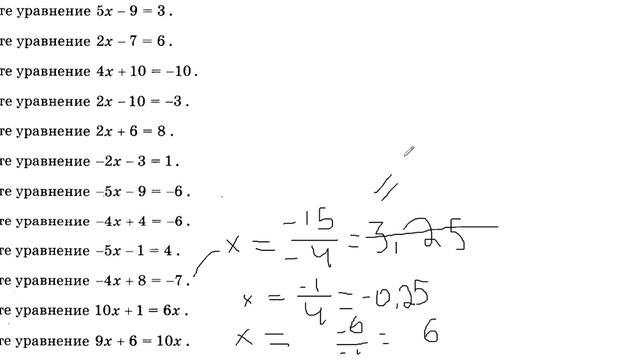 те уравнение 5x − 9 = 3 .
те уравнение 2x − 7 = 6 .
те уравнение 4x + 10 = −10 .
те уравнение 2x − 10 = −3 .
те уравнение 2x + 6 = 8 .
те уравнение −2x − 3 = 1 .
те уравнение −5x − 9 = −6 .
те уравнение −4x + 4 = −6 .
те уравнение −5x − 1 = 4 .
те уравнение −4x + 8 = −7 .
те уравнение 10x + 1 = 6x .
те уравнение 9x + 6 = 10x .
x = -15/-4 = 3,25
x = -1/4 = -0,25
x = -6/-1 = 6